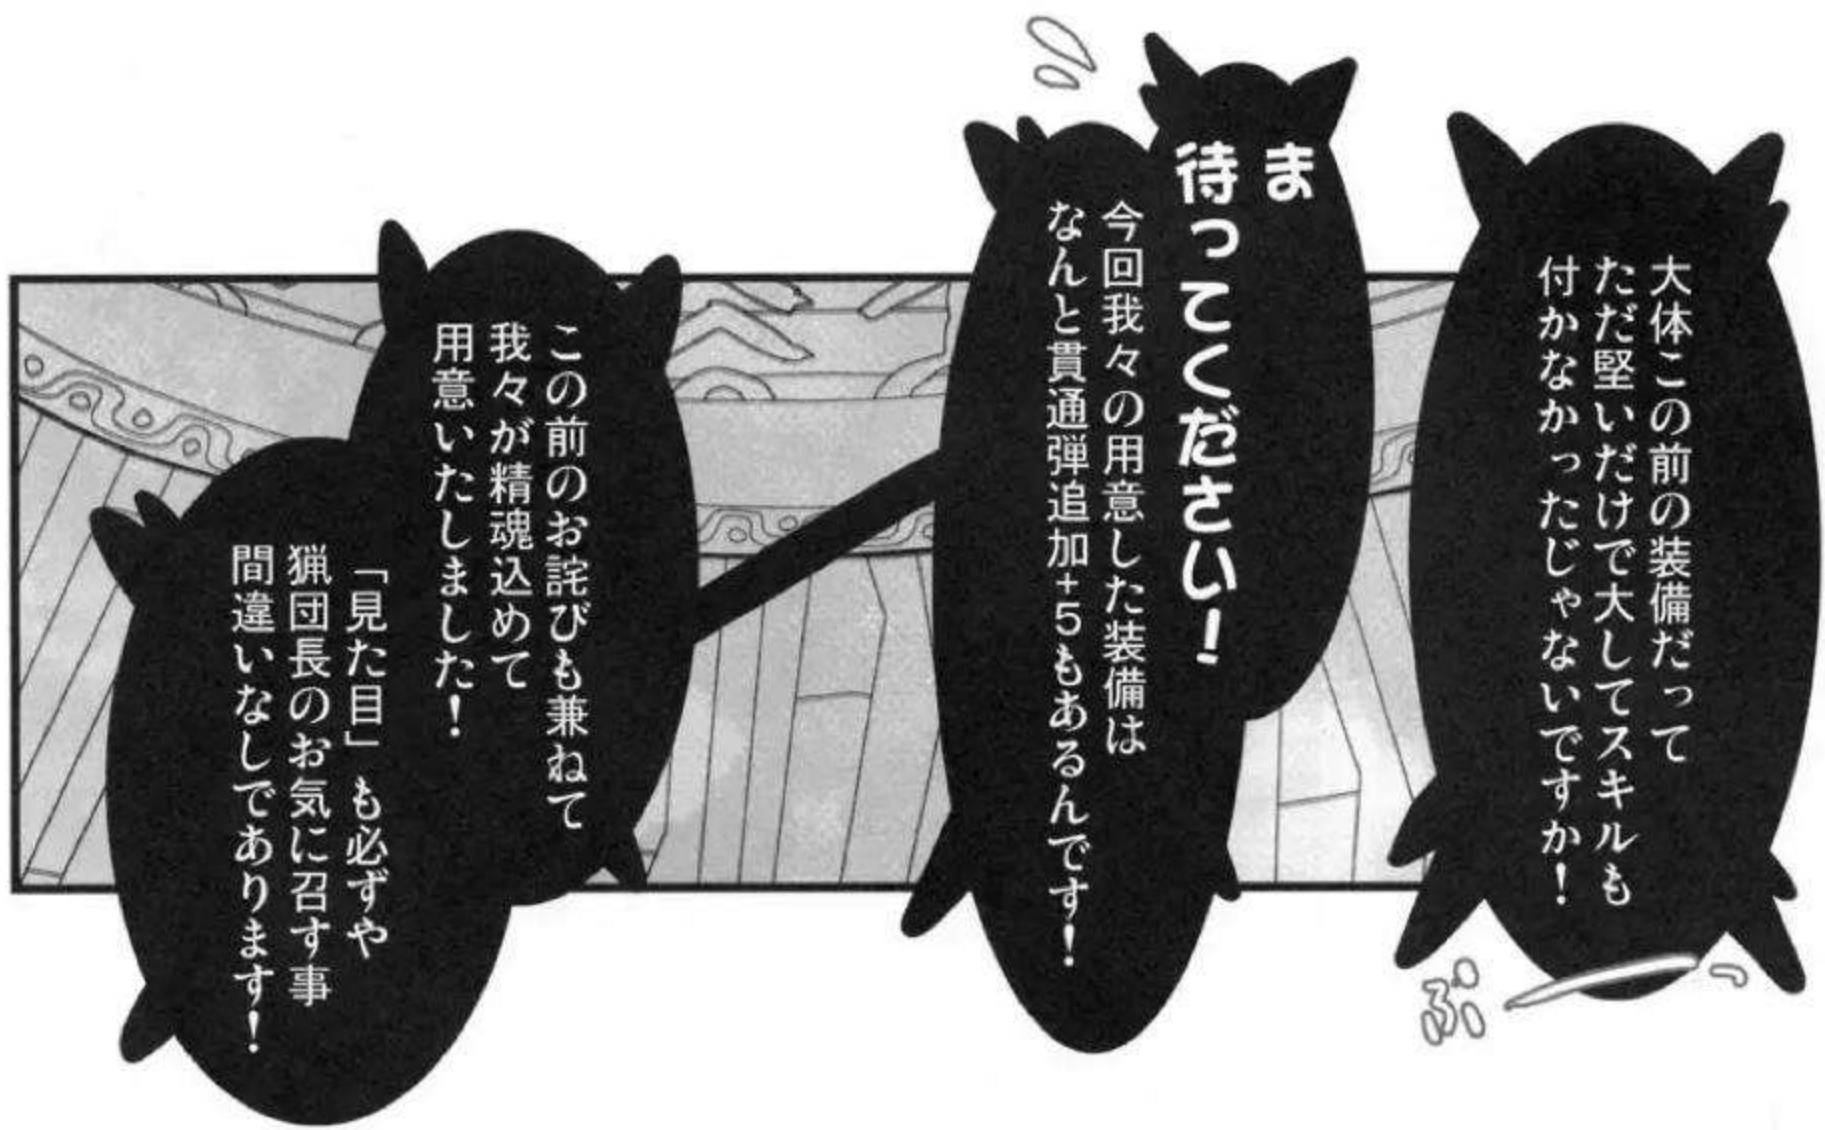 大体この前の装備だって
ただ堅いだけで大してスキルも
付かなかったじゃないですか！
ぷーっ
ま
待ってください！
今回我々の用意した装備は
なんと貫通弾追加+5もあるんです！
この前のお詫びも兼ねて
我々が精魂込めて
用意いたしました！
「見た目」も必ずや
猟団長のお気に召す事
間違いなしであります！